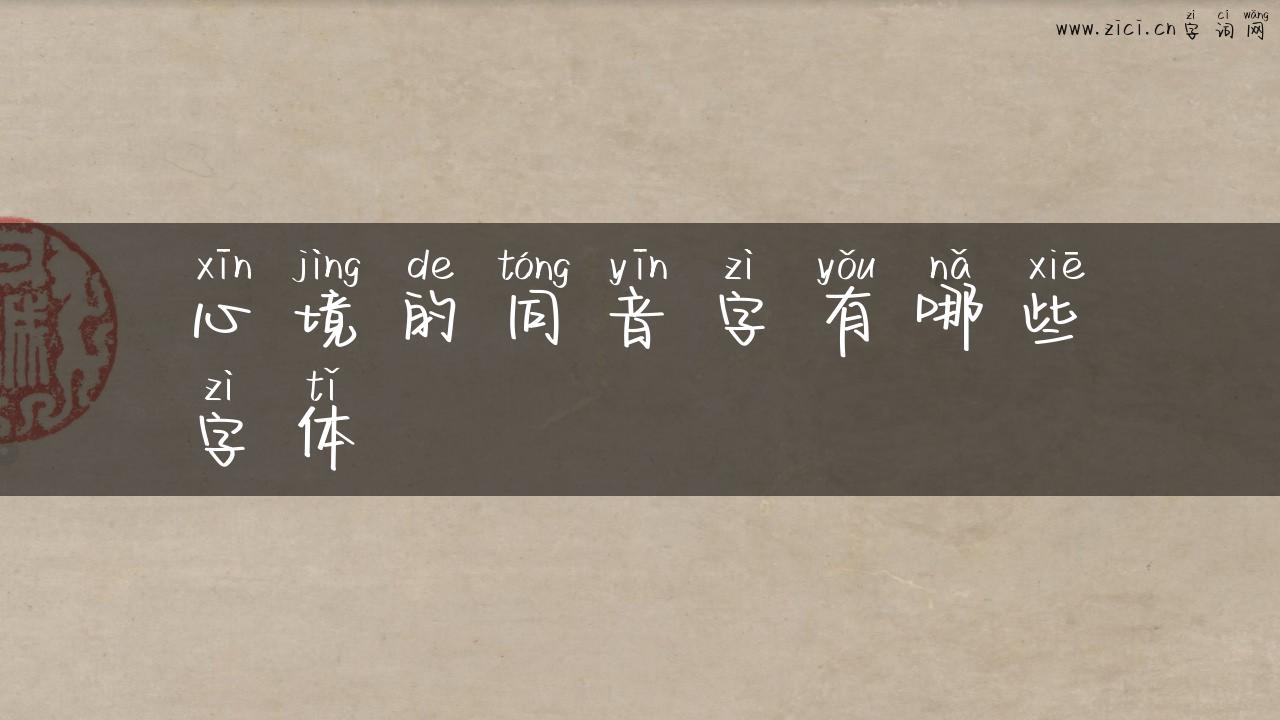 zì cí wǎng
www.zici.cn 字词网
xīn jìng de tóng yīn zì yǒu nǎ xiē
心境的同音字有哪些
zì tǐ
字体